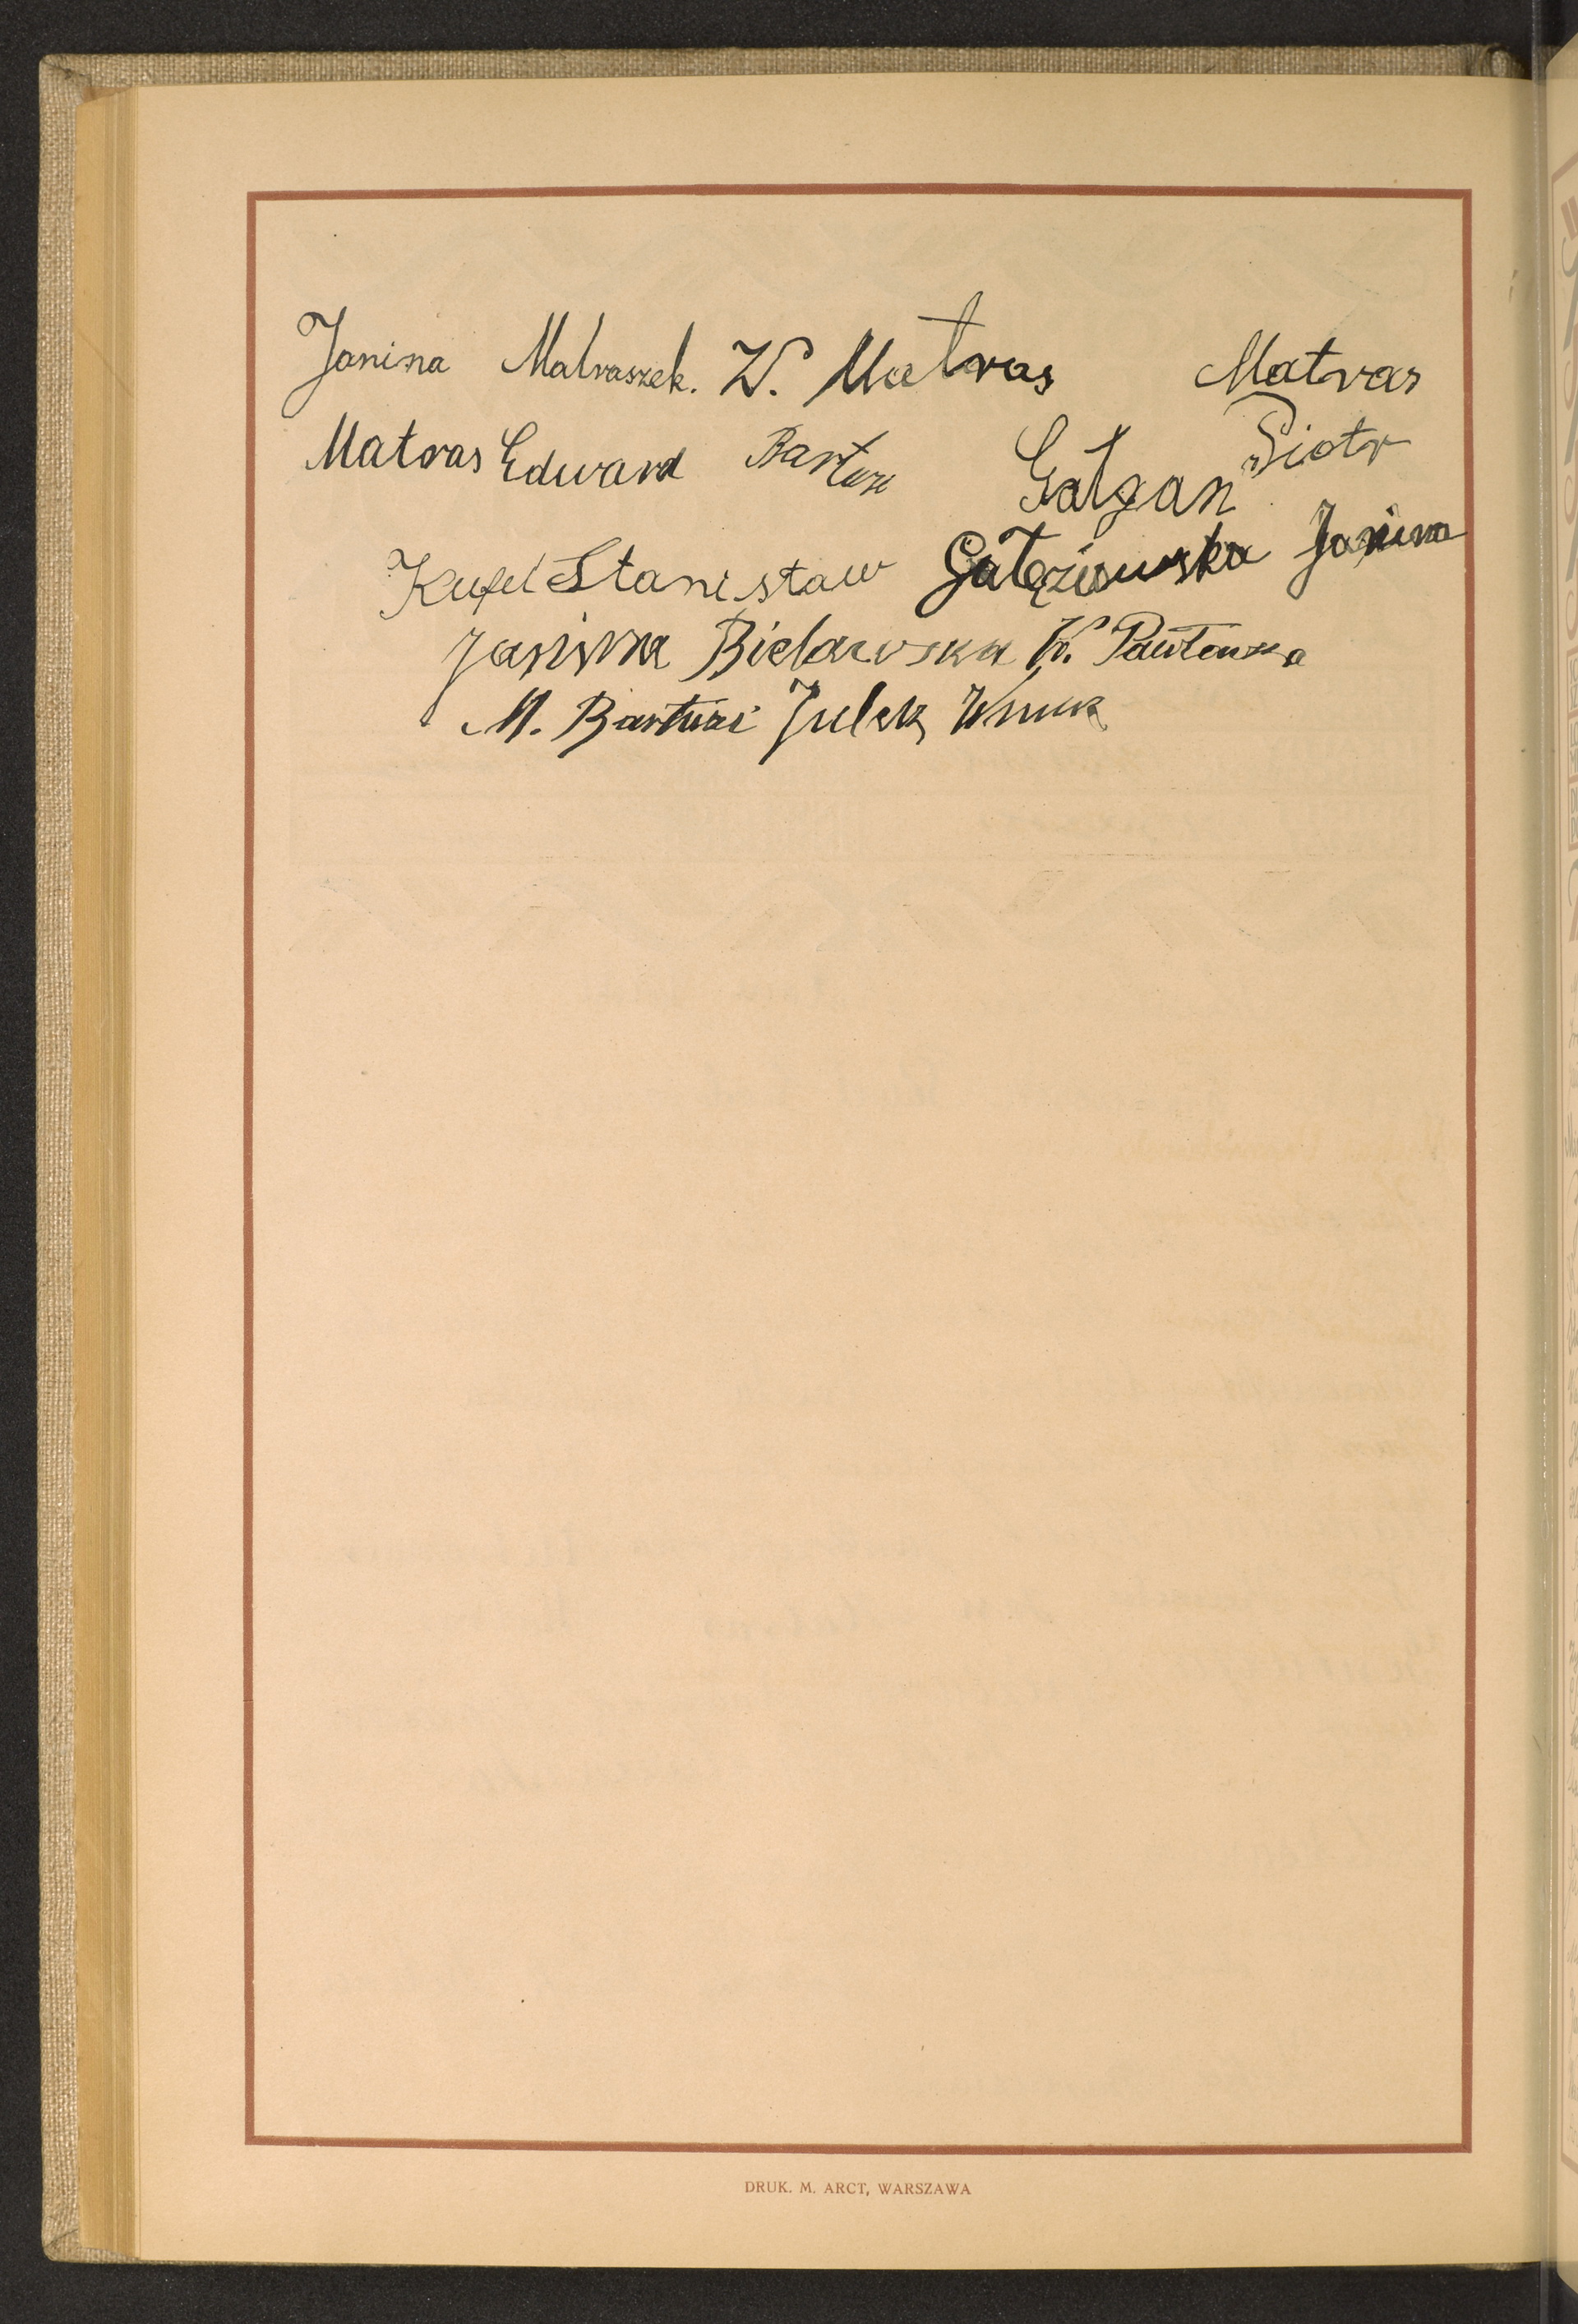 Janina Matraszek. W. Matras Matras
Matras Edward Bartuzi Gałgan Piotr
Kufel Stanisław Gałęziowska Janina
Janina Bielawska W.
M. Bartuzi Julek Wnuk
DRUK. M. ARCT, WARSZAWA